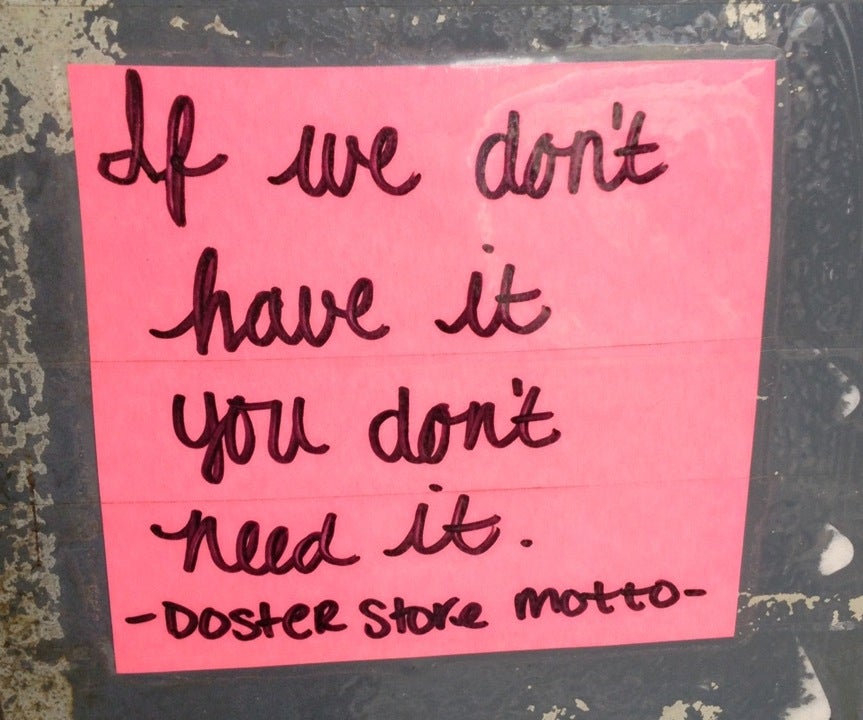 If we don't
have it
you don't
need it.
-DOSTER Store motto-